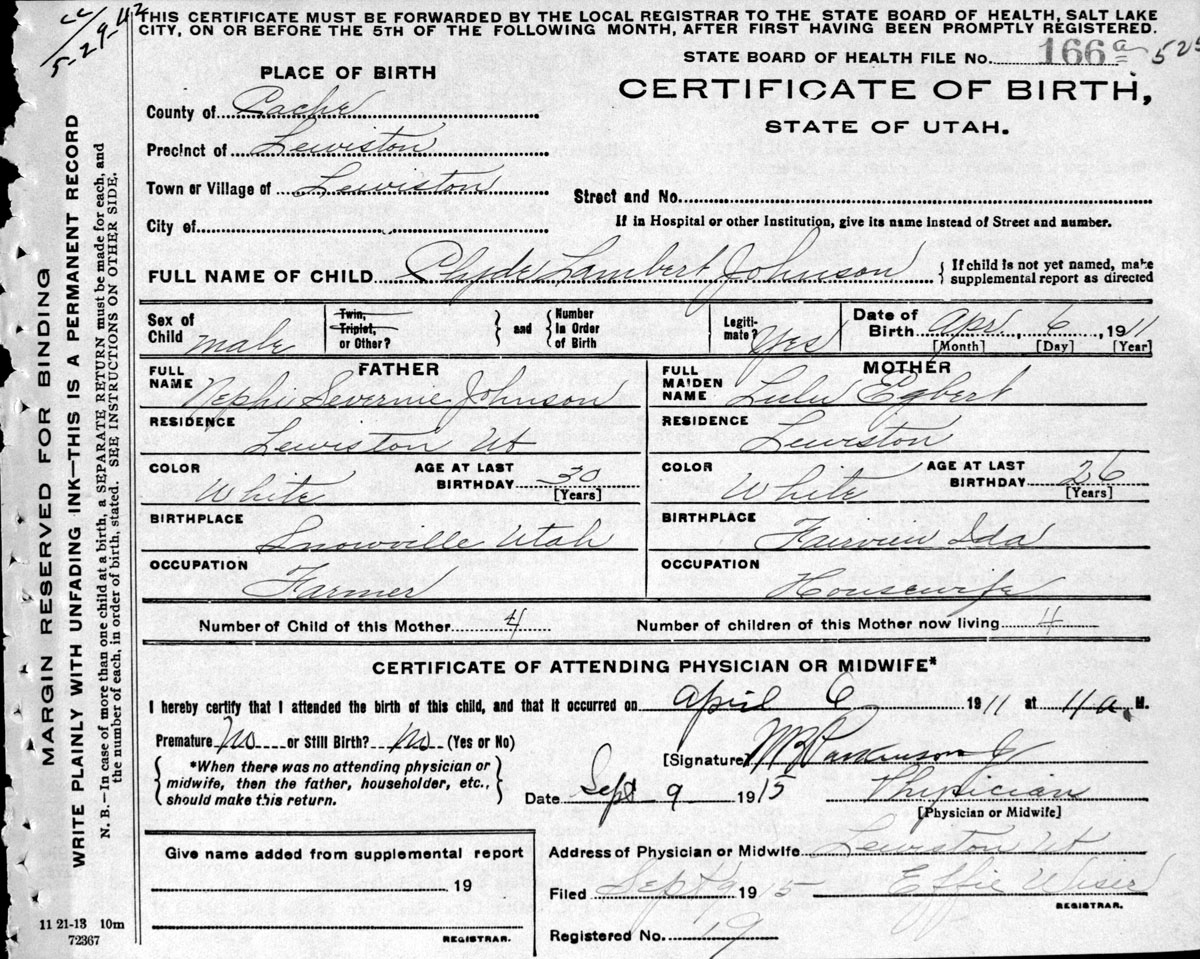 cc
5-29-42
THIS CERTIFICATE MUST BE FORWARDED BY THE LOCAL REGISTRAR TO THE STATE BOARD OF HEALTH, SALT LAKE
CITY, ON OR BEFORE THE 5TH OF THE FOLLOWING MONTH, AFTER FIRST HAVING BEEN PROMPTLY REGISTERED.
STATE BOARD OF HEALTH FILE No. 166 a 525
PLACE OF BIRTH
CERTIFICATE OF BIRTH,
STATE OF UTAH.
County of Cache
Precinct of Lewiston
Town or Village of Lewiston
Street and No.
City of
If in Hospital or other Institution, give its name instead of Street and number.
FULL NAME OF CHILD Clyde Lambert Johnson { If child is not yet named, make
supplemental report as directed
Sex of Child male
Twin, Triplet, or Other? } and { Number in Order of Birth
Legiti- mate? Yes
Date of Birth Apri 6, 1911
[Month] [Day] [Year]
FATHER
FULL NAME Nephi Severnie Johnson
RESIDENCE Lewiston Ut
COLOR White AGE AT LAST BIRTHDAY 30 [Years]
BIRTHPLACE Snowville Utah
OCCUPATION Farmer
MOTHER
FULL MAIDEN NAME Lulu Egbert
RESIDENCE Lewiston
COLOR White AGE AT LAST BIRTHDAY 26 [Years]
BIRTHPLACE Fairview Ida
OCCUPATION Housewife
Number of Child of this Mother 4 Number of children of this Mother now living 4
CERTIFICATE OF ATTENDING PHYSICIAN OR MIDWIFE*
I hereby certify that I attended the birth of this child, and that it occurred on April 6 1911 at 11 a. M.
Premature No or Still Birth? No (Yes or No)
{ *When there was no attending physician or
midwife, then the father, householder, etc.,
should make this return. }
[Signature] Parkinson Jr
Date Sept 9 1915 Physician
[Physician or Midwife]
Address of Physician or Midwife Lewiston Ut
Filed Sept 9 1915 Effie Wiser
REGISTRAR.
Registered No. 19
Give name added from supplemental report
19
REGISTRAR.
11 21-13 10m
72367
MARGIN RESERVED FOR BINDING
WRITE PLAINLY WITH UNFADING INK—THIS IS A PERMANENT RECORD
N. B.—In case of more than one child at a birth, a SEPARATE RETURN must be made for each, and
the number of each, in order of birth, stated. SEE INSTRUCTIONS ON OTHER SIDE.